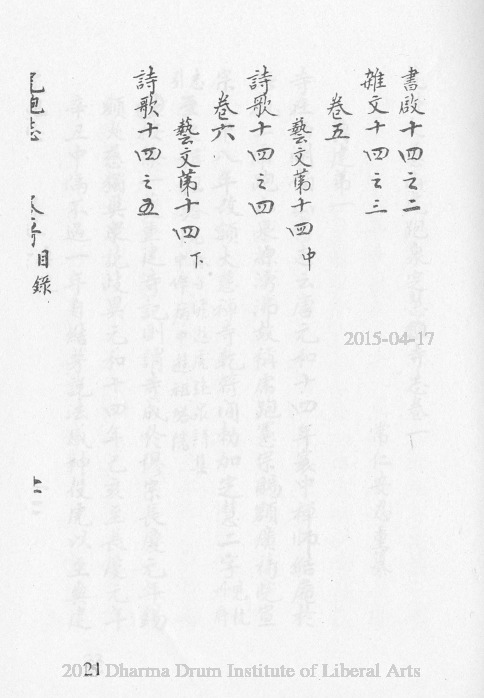 書啟十四之二
雜文十四之三
卷五
藝文第十四中
詩歌十四之四
卷六
藝文第十四下
詩歌十四之五
目錄
2015-04-17
21
Dharma Drum Institute of Liberal Arts